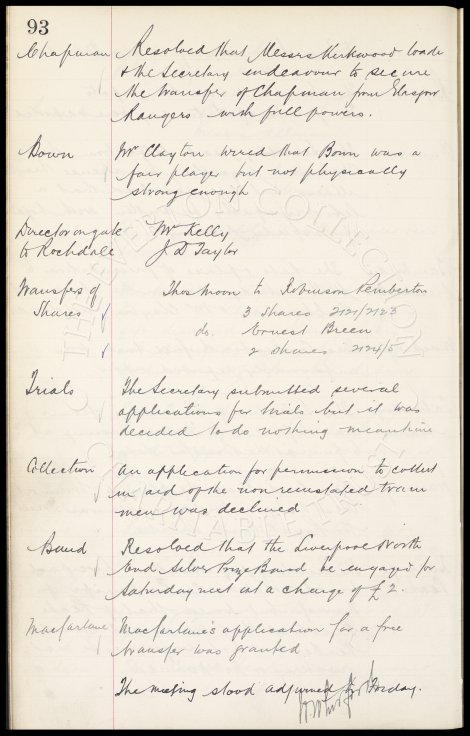 93
Chapman Resolved that Messrs Kirkwood Wade
& the Secretary endeavour to secure
the transfer of Chapman from Glasgow
Rangers with full powers.
Bown Mr Clayton wired that Bown was a
fair player but not physically
strong enough
Director on gate Mr Kelly
to Rochdale J D Taylor
Transfers of Thos Moon to Robinson Pemberton
Shares 3 shares 2121/2123
do. Ernest Breen
2 shares 2124/5
Trials The Secretary submitted several
applications for trials but it was
decided to do nothing meantime
Collection An application for permission to collect
in aid of the non reinstated tram
men was declined
Band Resolved that the Liverpool North
End Silver Prize Band be engaged for
Saturday next at a charge of £2.
Macfarlane Macfarlane's application for a free
transfer was granted
The meeting stood adjourned till Friday.
THE EVERTON COLLECTION
CHARITABLE TRUST